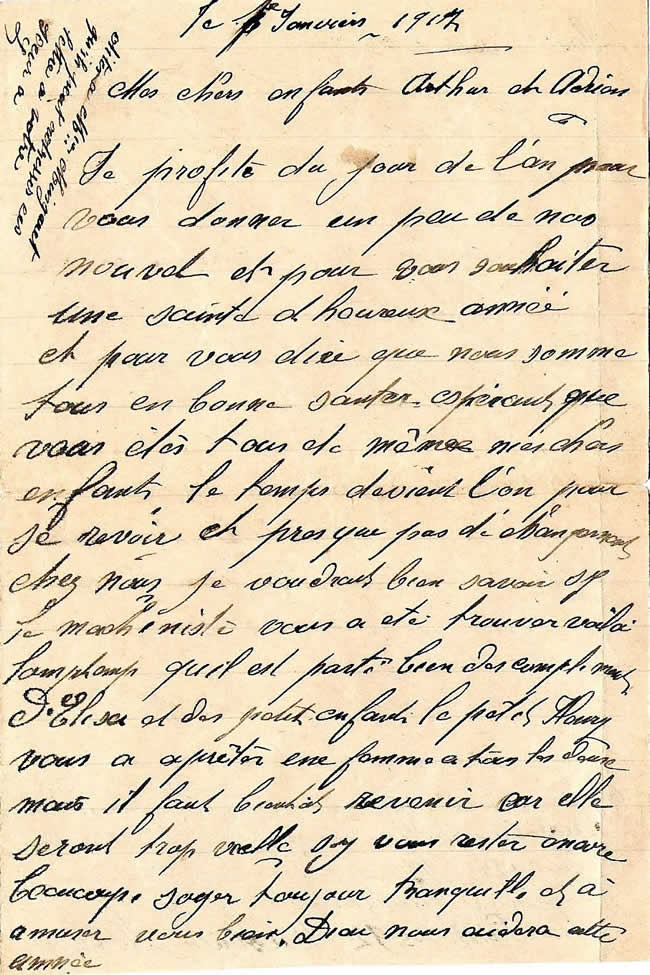 le 1e Janvier 1917
Mes chers enfants Arthur et Adrien
Je profite du jour de l'an pour
vous donner un peu de nos
nouvel et pour vous souhaiter
une sainte et heureuse année
et pour vous dire que nous somme
tous en bonne santer espérant que
vous êtes tous de même mes chers
enfants le temps devient l'on pour
se revoir et presque pas de changement
chez nous je voudrait bien savoir sy
le machiniste vous a eté trouver voila
lomptemp quil est parti bien des compliments
D'Elisa et des petit enfants le petit Henry
vous a aprêter une femme a tous les deux
mais il faut bientôt revenir car elle
seront trop vielle sy vous rester encore
beaucoup. soyer toujour tranquille et à
amuser vous bien. Dieu nous aidera cette
année
dites a Mr
qu'il peut adresser ces
lettre a votre
soeur a